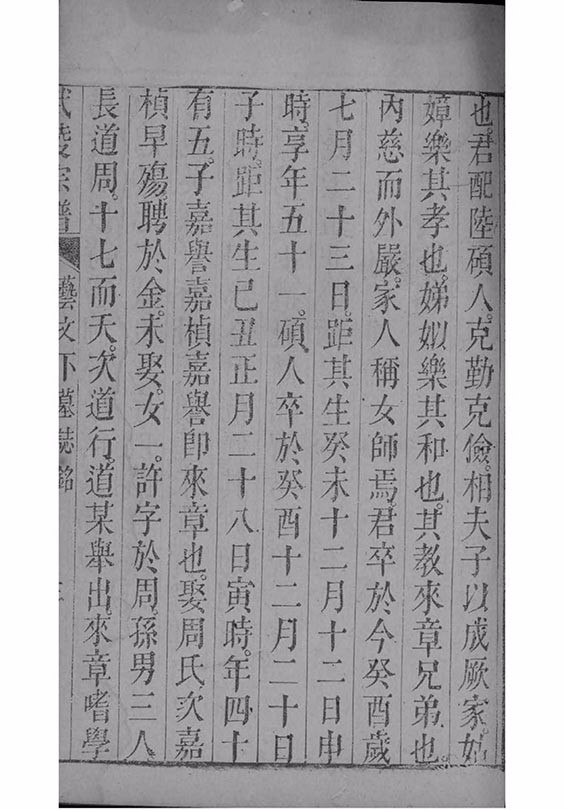 也。君配陸碩人。克勤克儉。相夫子以成厥家。姑
嫜樂其孝也。娣姒樂其和也。其教來章兄弟也。
內慈而外嚴。家人稱女師焉。君卒於今癸酉歲
七月二十三日。距其生癸未十二月十二日申
時。享年五十一。碩人卒於癸酉十二月二十日
子時。距其生己丑正月二十八日寅時。年四十
有五。子嘉譽嘉楨嘉譽卽來章也。娶周氏。次嘉
楨早殤。聘於金。未娶。女一。許字於周。孫男三人
長道周。十七而夭。次道行。道某舉出。來章嗜學
宗譜 藝文下墓誌銘